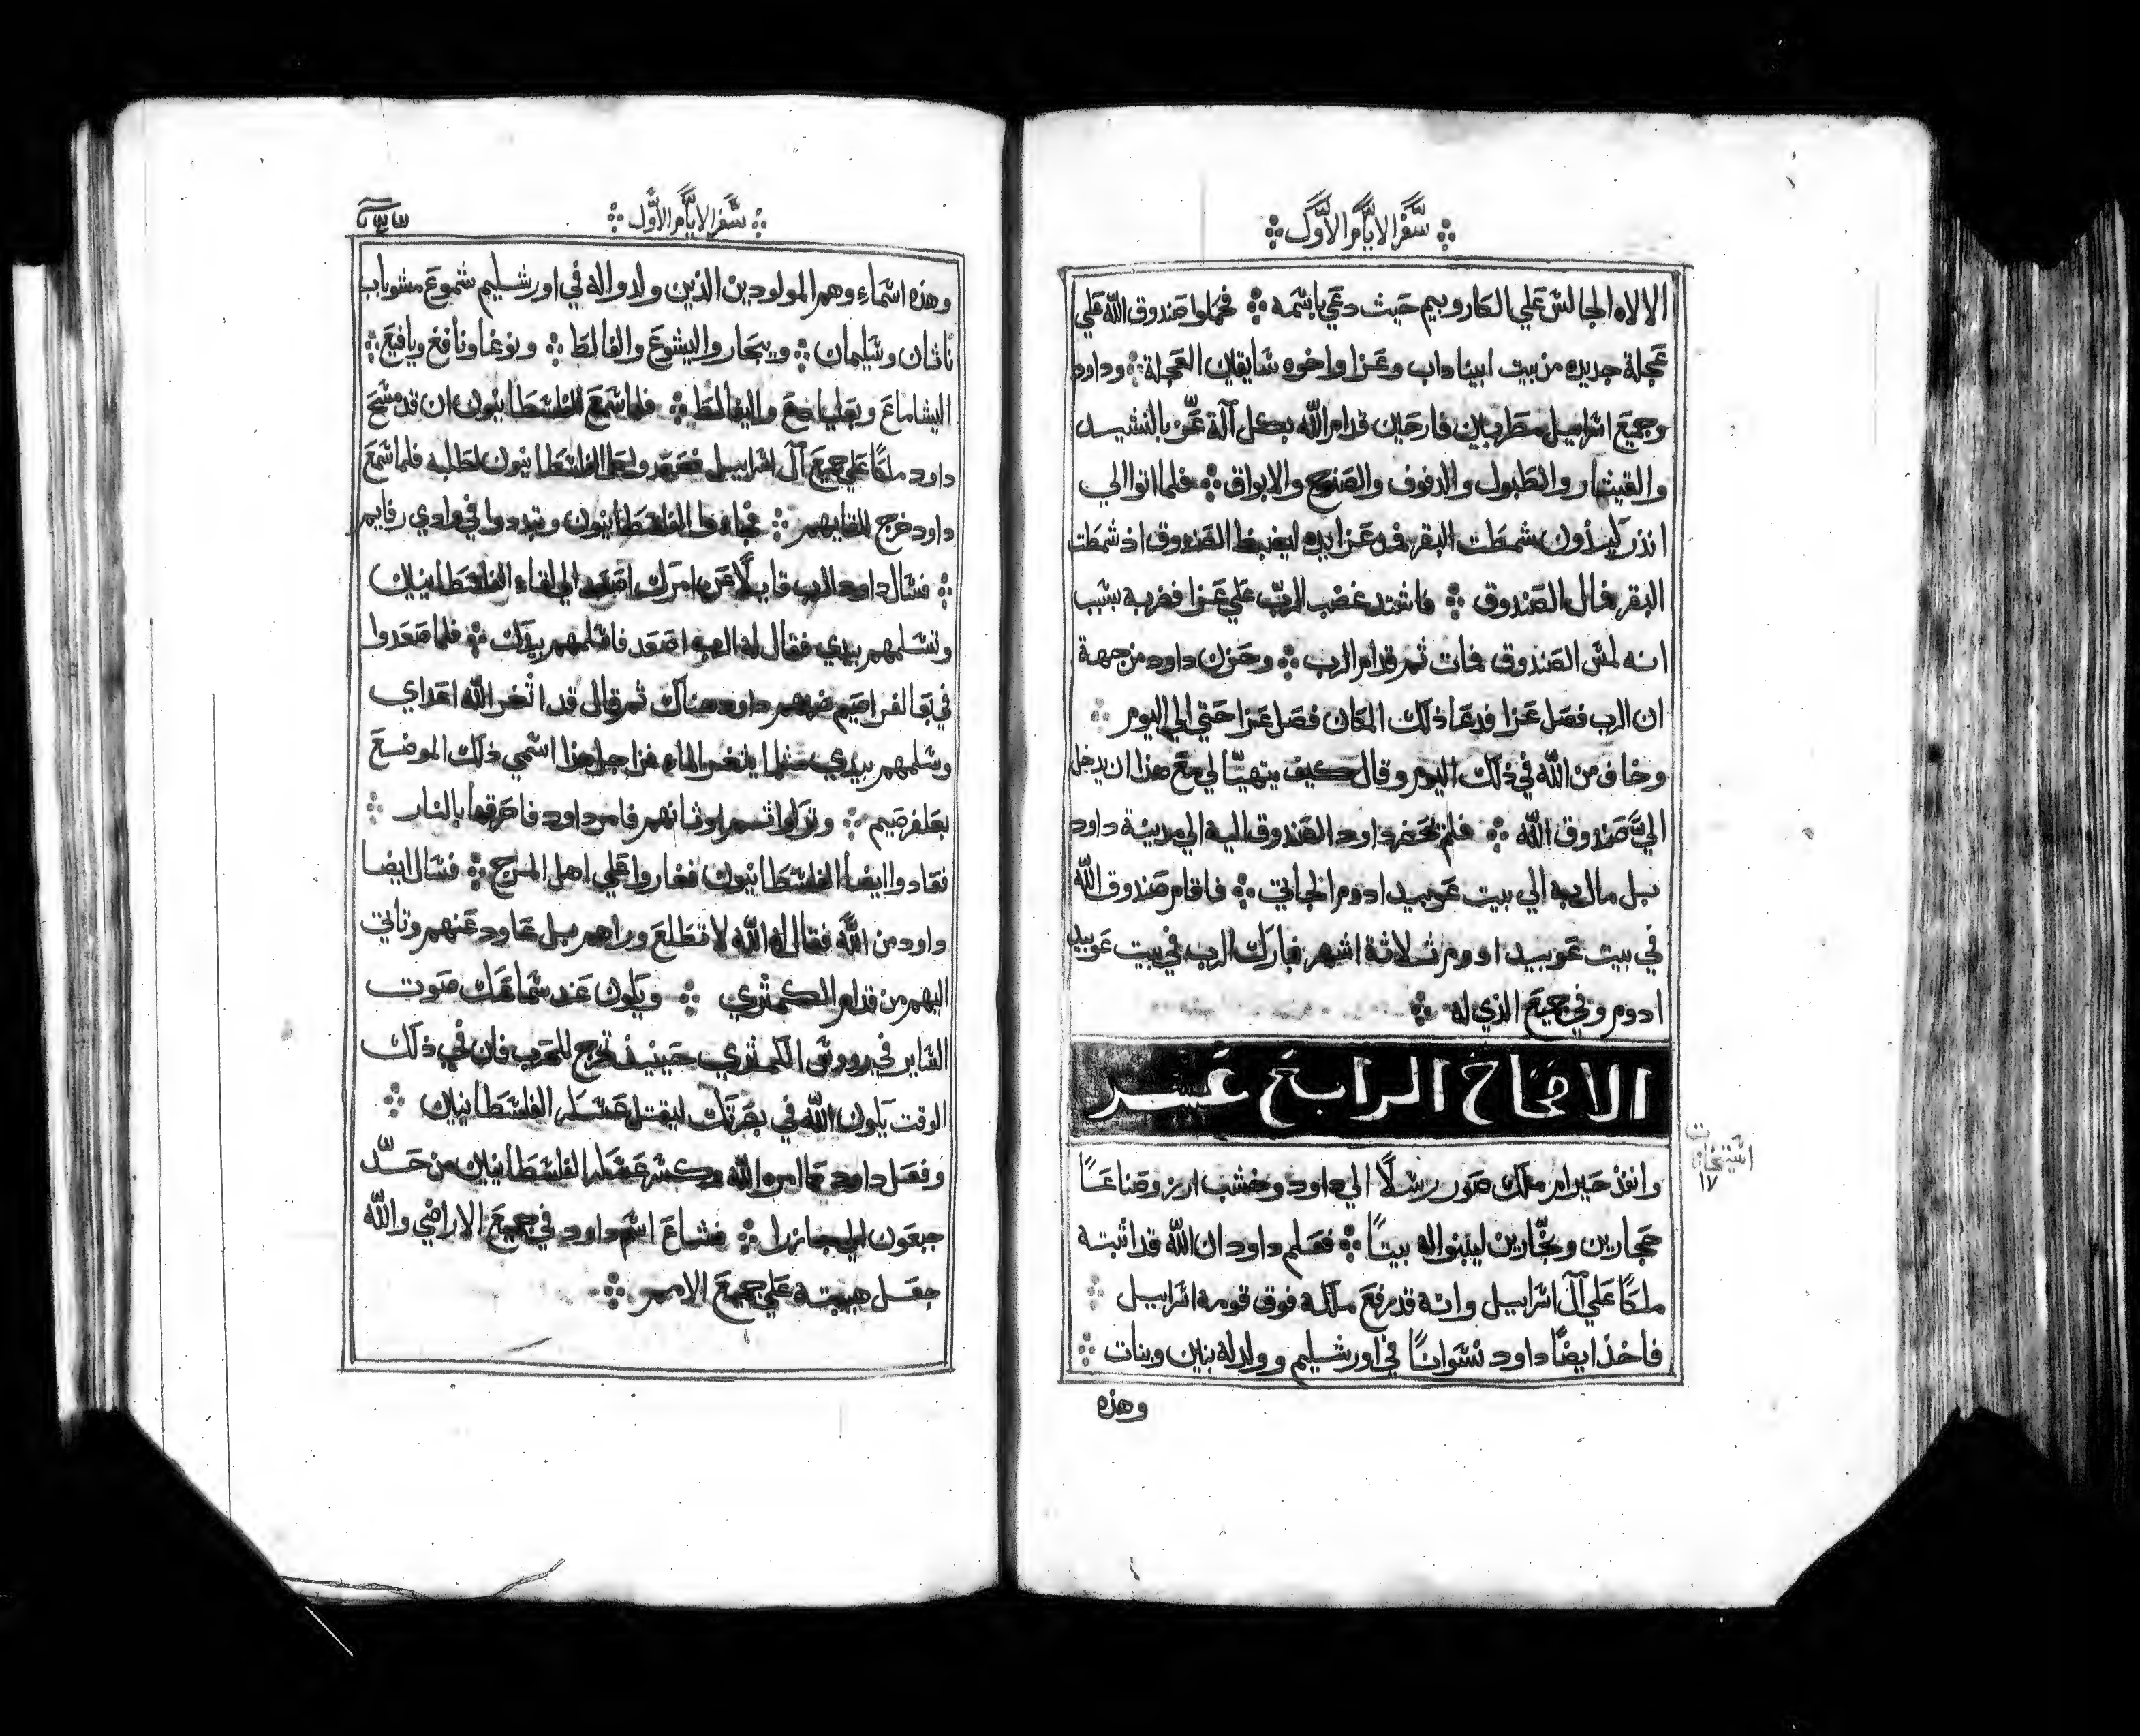 سفر الايام الاول
الالاه الجالس علي الكاروبيم حيث دعي باسمه فحملوا صندوق الله علي
عجلة جديده من بيت ابيناداب وعزا واخوه سايقين العجلة وداود
وجميع اسراييل مطربين فارحين قدام الله بكل آلة عز بالنشيد
والقيثار والطبول والدفوف والصنوج والابواق فلما اتوا الي
انذر كيذون شمطت البقر فمد عزا يده ليضبط الصندوق اذ شمطت
البقر فمال الصندوق فاشتد غضب الرب علي عزا فضربه بسبب
انه لمس الصندوق فمات ثم قدام الرب وحزن داود من جهة
ان الرب فصل عزا فدعا ذلك المكان فصل عزا حتي الي اليوم
وخاف من الله في ذلك اليوم وقال كيف يتهيا لي مع هذا ان يدخل
الي صندوق الله فلم يحضر داود الصندوق اليه الي مدينة داود
بل مال به الي بيت عوبيد ادوم الجاتي فاقام صندوق الله
في بيت عوبيد ادوم ثلاثة اشهر فبارك الرب في بيت عوبيد
ادوم وفي جميع الذي له
الاصحاح الرابع عشر
وانفذ حيرام ملك صور رسلا الي داود وخشب ارز وصناعا
حجارين ونجارين ليبنوا له بيتا فعلم داود ان الله قد اثبته
ملكا علي آل اسراييل وانه قد رفع ملكه فوق قومه اسراييل
فاخذ ايضا داود نسوانا في اورشليم وولد له بنين وبنات
وهذه
١٧
سفر الايام الاول
وهذه اسماء وهم المولودين الذين ولدوا له في اورشليم شموع مشوباب
ناثان وسليمان ويبحار واليشوع والفالط ونوغا ونافغ ويافيع
اليشاماع وبعلياضع واليفالط فلما سمع الفلسطانيون ان قد مسح
داود ملكا علي جميع آل اسراييل فصعد الفلسطانيون لطلبه فلما سمع
داود خرج للقايهم فجاوا الفلسطانيون وتبددوا في وادي رفايم
فسال داود الرب قايلا عن امرك اصعد الي لقاء الفلسطانيين
وتسلمهم بيدي فقال له الرب اصعد فاسلمهم بيدك فلما صعدوا
في بعالفراصيم ضربهم داود هناك ثم قال قد اثغر الله اعداي
وسلمهم بيدي مثلما يثغر الماء فمن اجل هذا اسمي ذلك الموضع
بعلفرصيم وتركوا ثم اوثانهم فامر داود فاحرقها بالنار
فعادوا ايضا الفلسطانيون فغاروا علي اهل المرج فسال ايضا
داود من الله فقال له الله لا تطلع وراهم بل عاود عنهم وتاتي
اليهم من قدام الكمثري ويكون عند سماعك صوت
الساير في رووس الكمثري حينيذ تخرج للحرب فان في ذلك
الوقت يكون الله في بحرتك ليقتل عسكر الفلسطانيين
وفعل داود كما امره الله وكسر عسكر الفلسطانيين من حد
جبعون الي جازرا فشاع اسم داود في جميع الاراضي والله
جعل هيبته علي جميع الامم